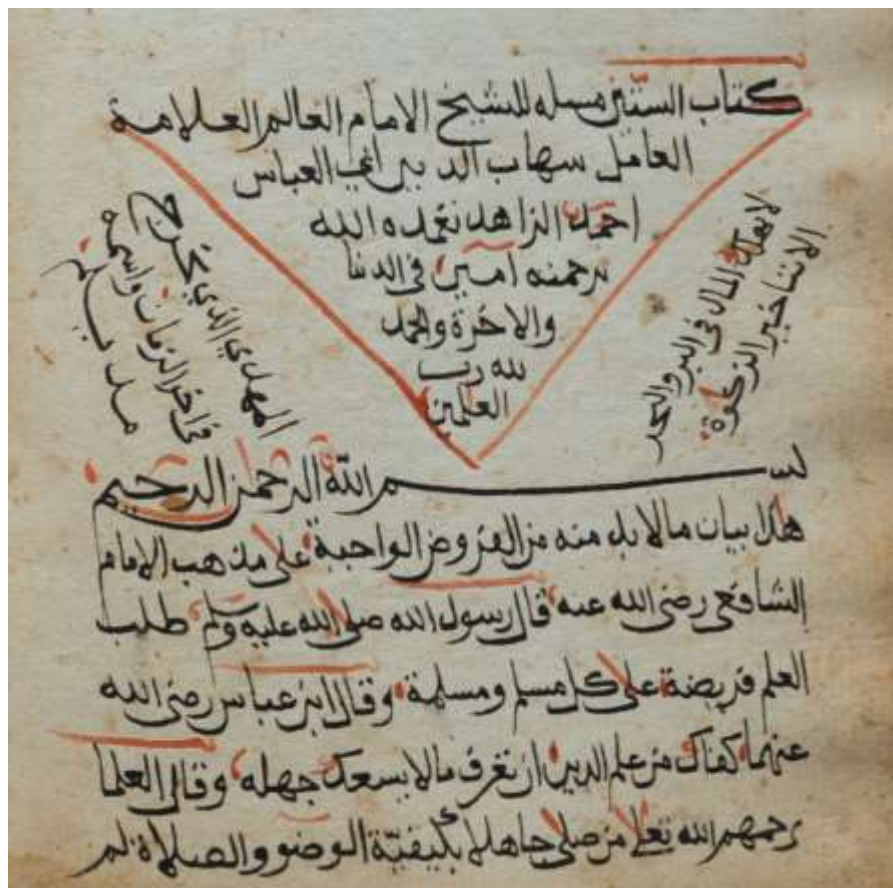 كتاب الستين مسله للشيخ الامام العالم العلامة
العامل سهاب الدين ابي العباس
احمد الزاهد تغمده الله
برحمته امين في الدنيا
والاخرة والحمد
لله رب
العلمين
لا يهلك المال في البر والبحر
الا بتاخير الزكوة
المهدي الذي يخرج
في اخر الزمان واسمه
بسم الله الرحمن الرحيم
هذا بيان مالا بد منه من الفروض الواجبة على مذهب الامام
الشافعي رضي الله عنه قال رسول الله صلى الله عليه وسلم طلب
العلم فريضة على كل مسلم ومسلمة وقال ابن عباس رضي الله
عنهما كفاك من علم الدين ان تعرف مالا يسعك جهله وقال العلما
رحمهم الله تعلى من صلى جاهلا بكيفيّة الوضوو والصلاة لم